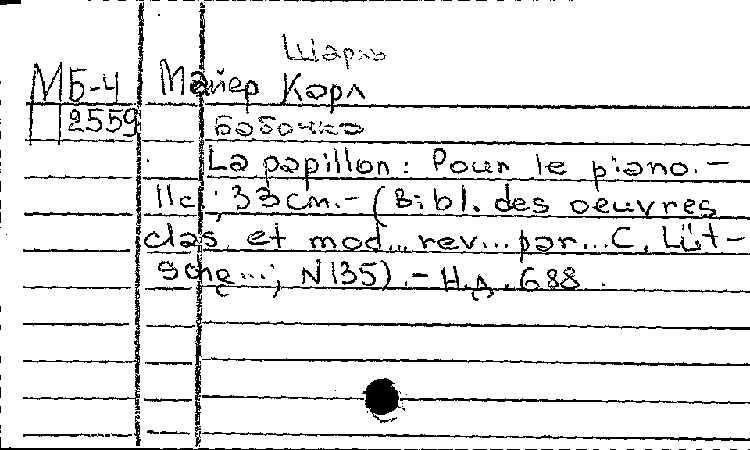 Шарль
МБ-4 Майер Карл
2559 Бабочка
La papillon: Pour le piano.-
11с.; 33см.-(Bibl. des oeuvres
clas. et mod... rev... par... C. Lüt-
sche...; N135).-Н.д.688.